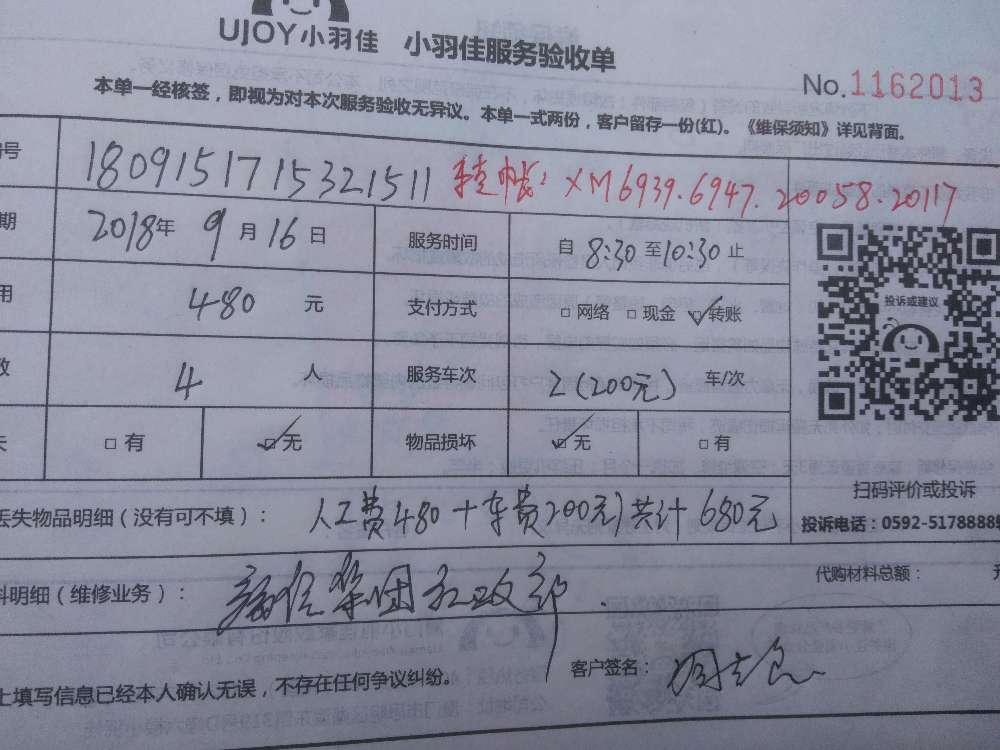 UJOY小羽佳 小羽佳服务验收单
No.1162013
本单一经核签，即视为对本次服务验收无异议。本单一式两份，客户留存一份(红)。《维保须知》详见背面。
号 180915171532 1511 XM6939.6947.20058.20117
期 2018年9月16日 服务时间 自8:30至10:30止
用 480元 支付方式 □网络 □现金 ☑转账
投诉或建议
数 4人 服务车次 2(200元)车/次
失 □有 ☑无 物品损坏 ☑无 □有
扫码评价或投诉
丢失物品明细（没有可不填）： 人工费480+车费200元)共计680元
投诉电话：0592-5178888
代购材料总额： 元
料明细（维修业务）： 集团 政部
客户签名： 周
上填写信息已经本人确认无误，不存在任何争议纠纷。